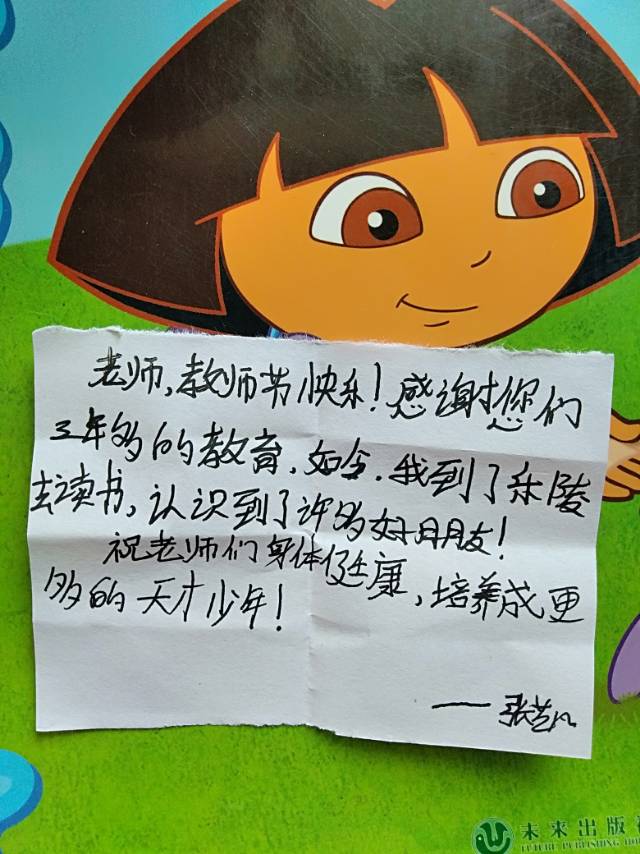 老师,教师节快乐!感谢您们
三年多的教育,如今,我到了乐陵
去读书,认识到了许多好朋友!
祝老师们身体健康,培养成更
多的天才少年!
——张艺凡
未来出版社
FUTURE PUBLISHING HO